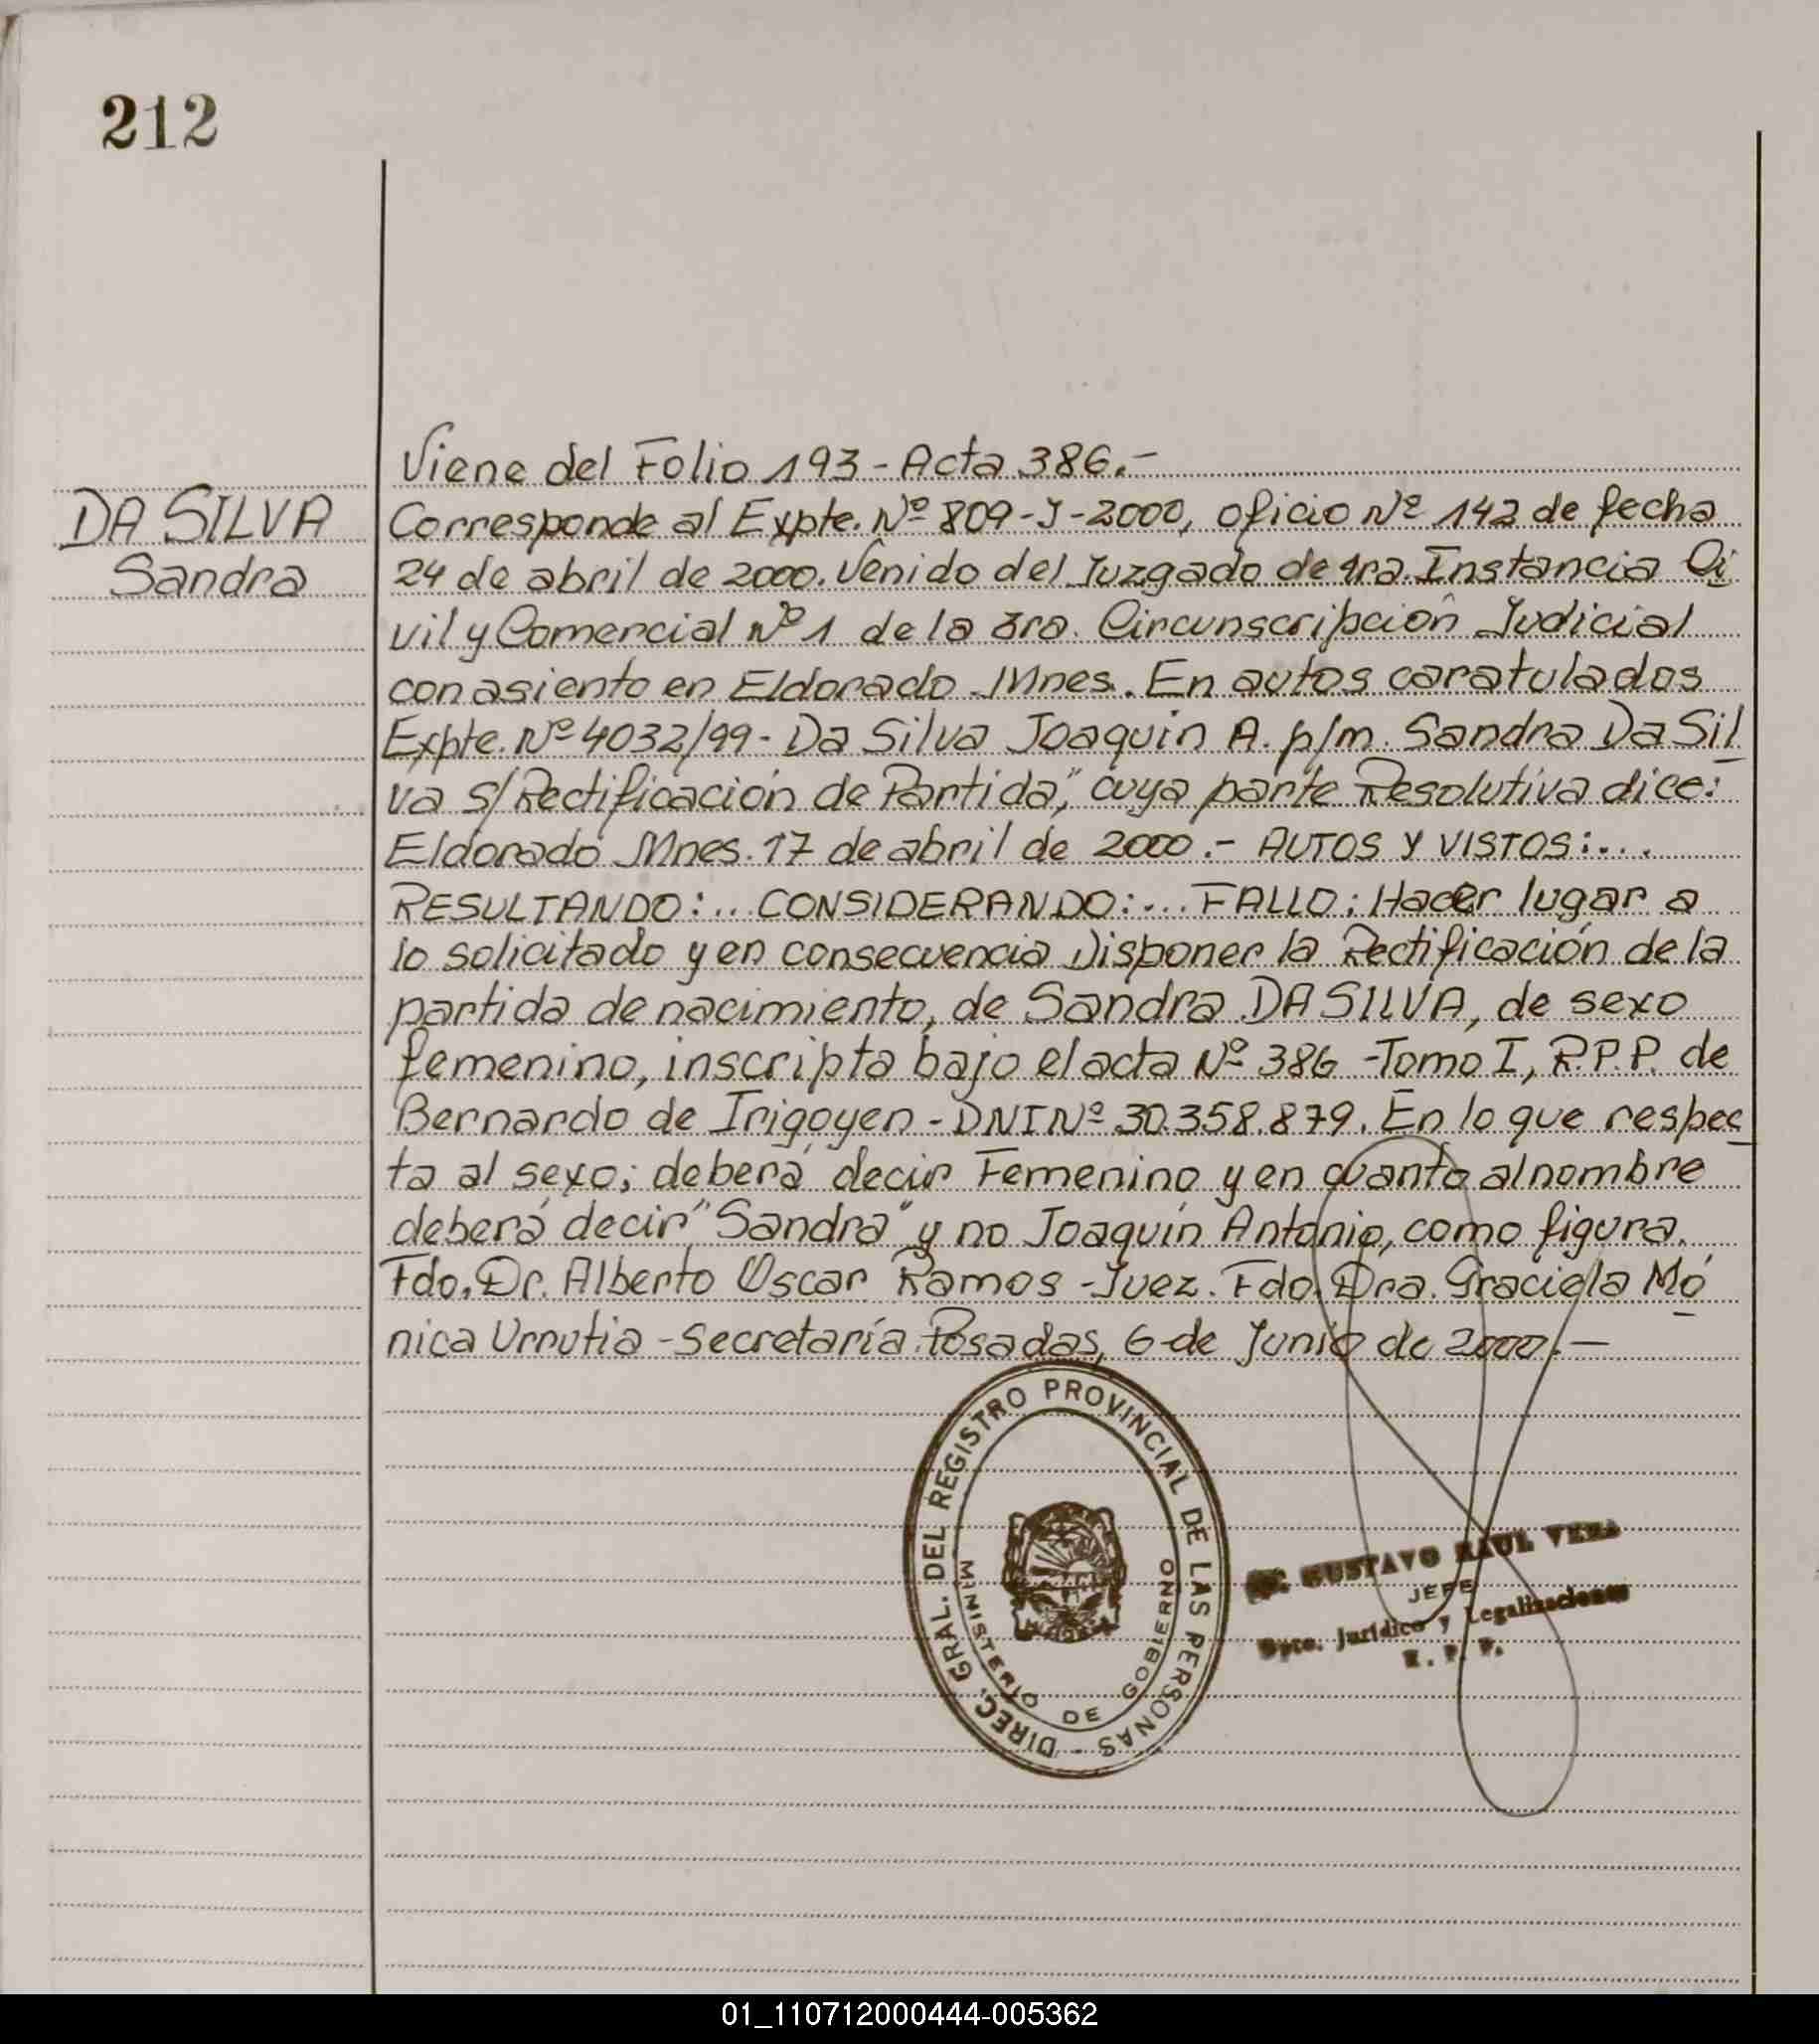 212
DA SILVA
Sandra
Viene del Folio 193 - Acta 386.-
Corresponde al Expte. Nº 809-J-2000, oficio Nº 142 de fecha
24 de abril de 2000. Venido del Juzgado de 1ra. Instancia Ci
vil y Comercial Nº 1 de la 3ra. Circunscripción Judicial
con asiento en Eldorado - Mnes. En autos caratulados
Expte. Nº 4032/99 - Da Silva Joaquín A. p/m. Sandra Da Sil
va s/Rectificación de Partida", cuya parte Resolutiva dice:
Eldorado Mnes. 17 de abril de 2000.- AUTOS Y VISTOS:...
RESULTANDO:... CONSIDERANDO:... FALLO: Hacer lugar a
lo solicitado y en consecuencia Disponer la Rectificación de la
partida de nacimiento, de Sandra DA SILVA, de sexo
femenino, inscripta bajo el acta Nº 386 - Tomo I, R.P.P. de
Bernardo de Irigoyen - DNI Nº 30.358.879. En lo que respec
ta al sexo; deberá decir Femenino y en cuanto al nombre
deberá decir "Sandra" y no Joaquín Antonio, como figura.
Fdo. Dr. Alberto Oscar Ramos - Juez. Fdo. Dra. Graciela Mó
nica Urrutia - Secretaría. Posadas, 6 de Junio de 2000.-
DIREC. GRAL. DEL REGISTRO PROVINCIAL DE LAS PERSONAS -
MINISTERIO DE GOBIERNO
GUSTAVO RAUL VERA
JEFE
Dpto. Jurídico y Legalizaciones
R. P. P.
01_110712000444-005362